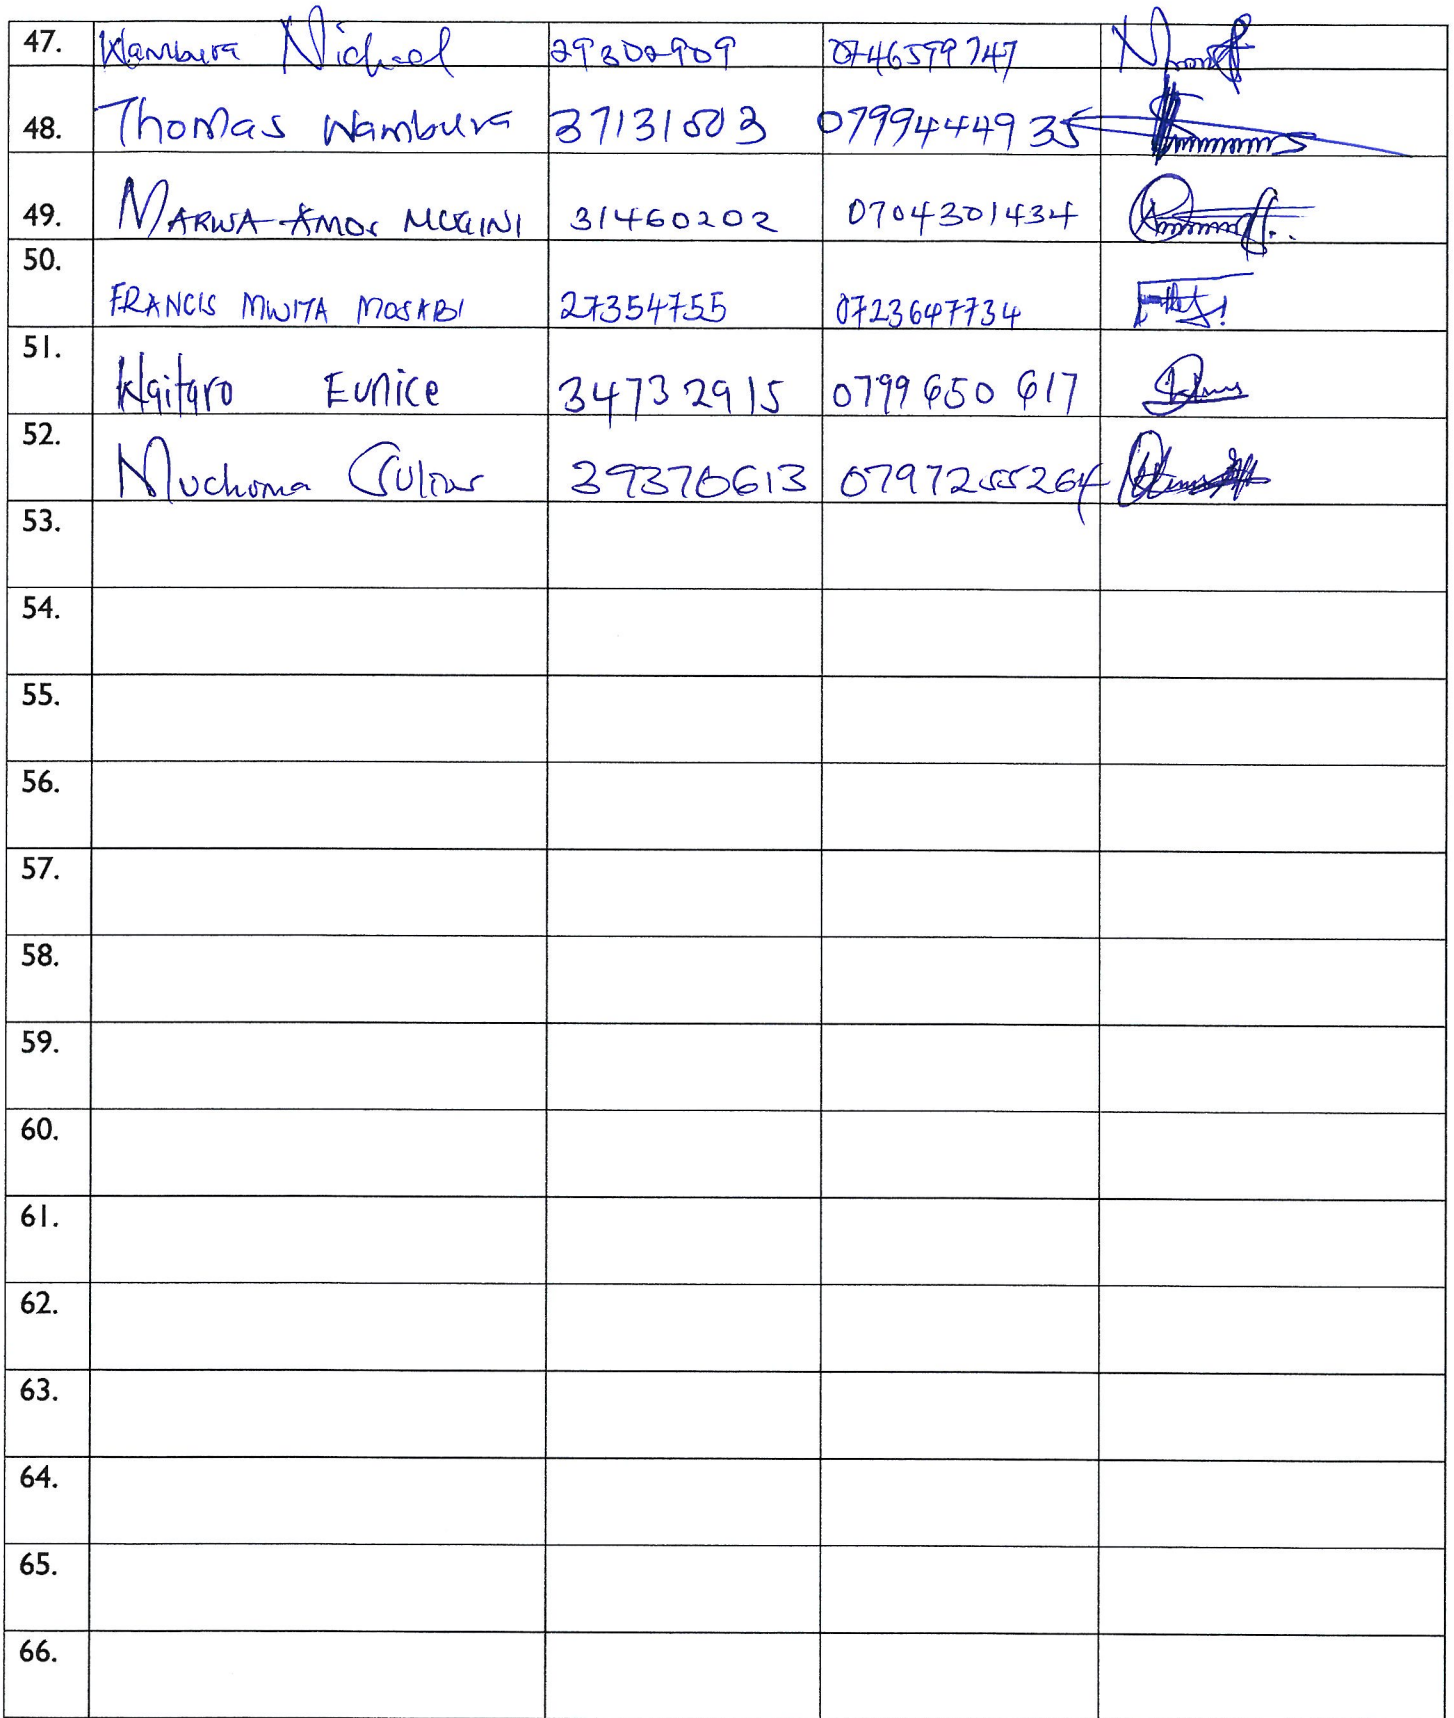 47. Wambura Nichol 29302909 0746599747
48. Thomas Wambura 37131003 0799444935
49. MARWA AMOS 31460202 0704301434
50. FRANCIS MWITA MOSABI 27354755 0723647734
51. Waitaro Eunice 34732915 0799650617
52. Muchoma Julius 39370613 0797255264
53.
54.
55.
56.
57.
58.
59.
60.
61.
62.
63.
64.
65.
66.